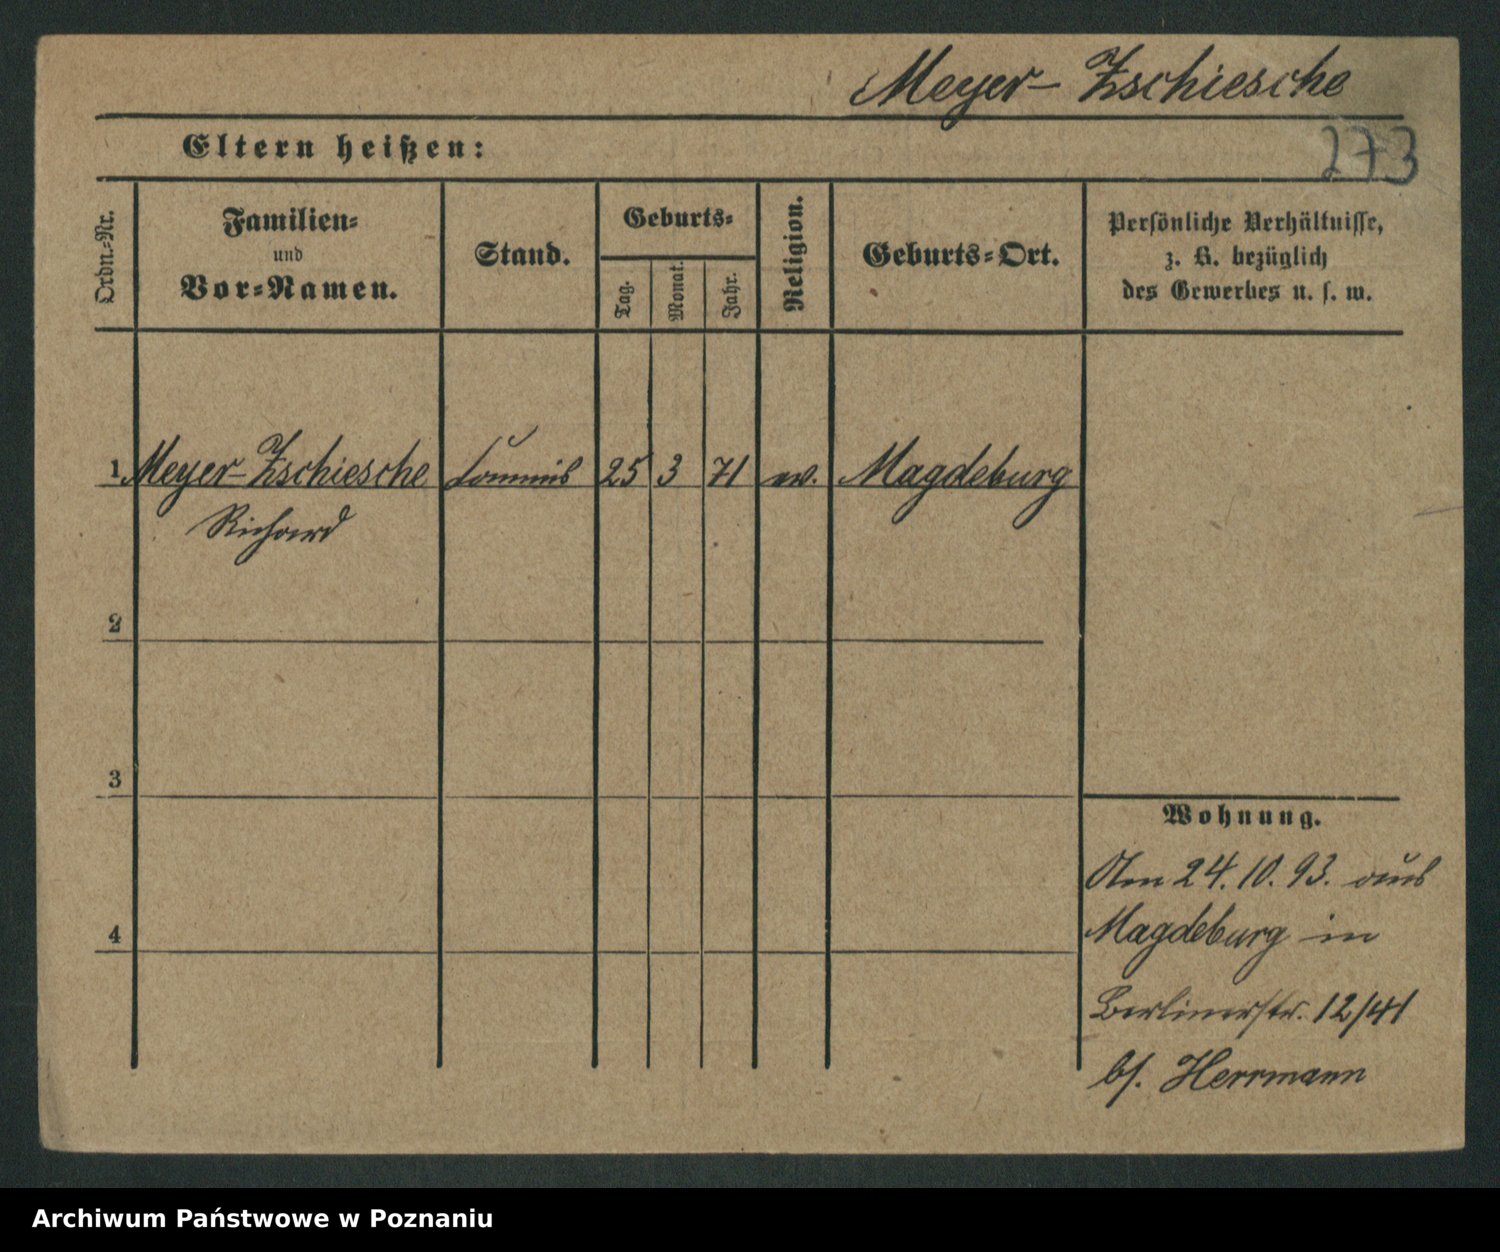 Meyer-Zschiesche
273
Eltern heißen:
Ordn.-Nr.
Familien-
und
Vor-Namen.
Stand.
Geburts-
Tag.
Monat.
Jahr.
Religion.
Geburts-Ort.
Persönliche Verhältnisse,
z. B. bezüglich
des Gewerbes u. s. w.
1 Meyer-Zschiesche Commis 25 3 71 ev. Magdeburg
Richard
2
3
4
Wohnung.
Am 24.10.93. aus
Magdeburg in
Berlinerstr. 12/41
bs. Herrmann
Archiwum Państwowe w Poznaniu